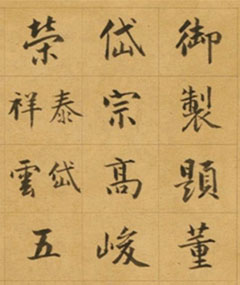 御製題董
岱宗高峻
榮
泰岱
祥雲
五